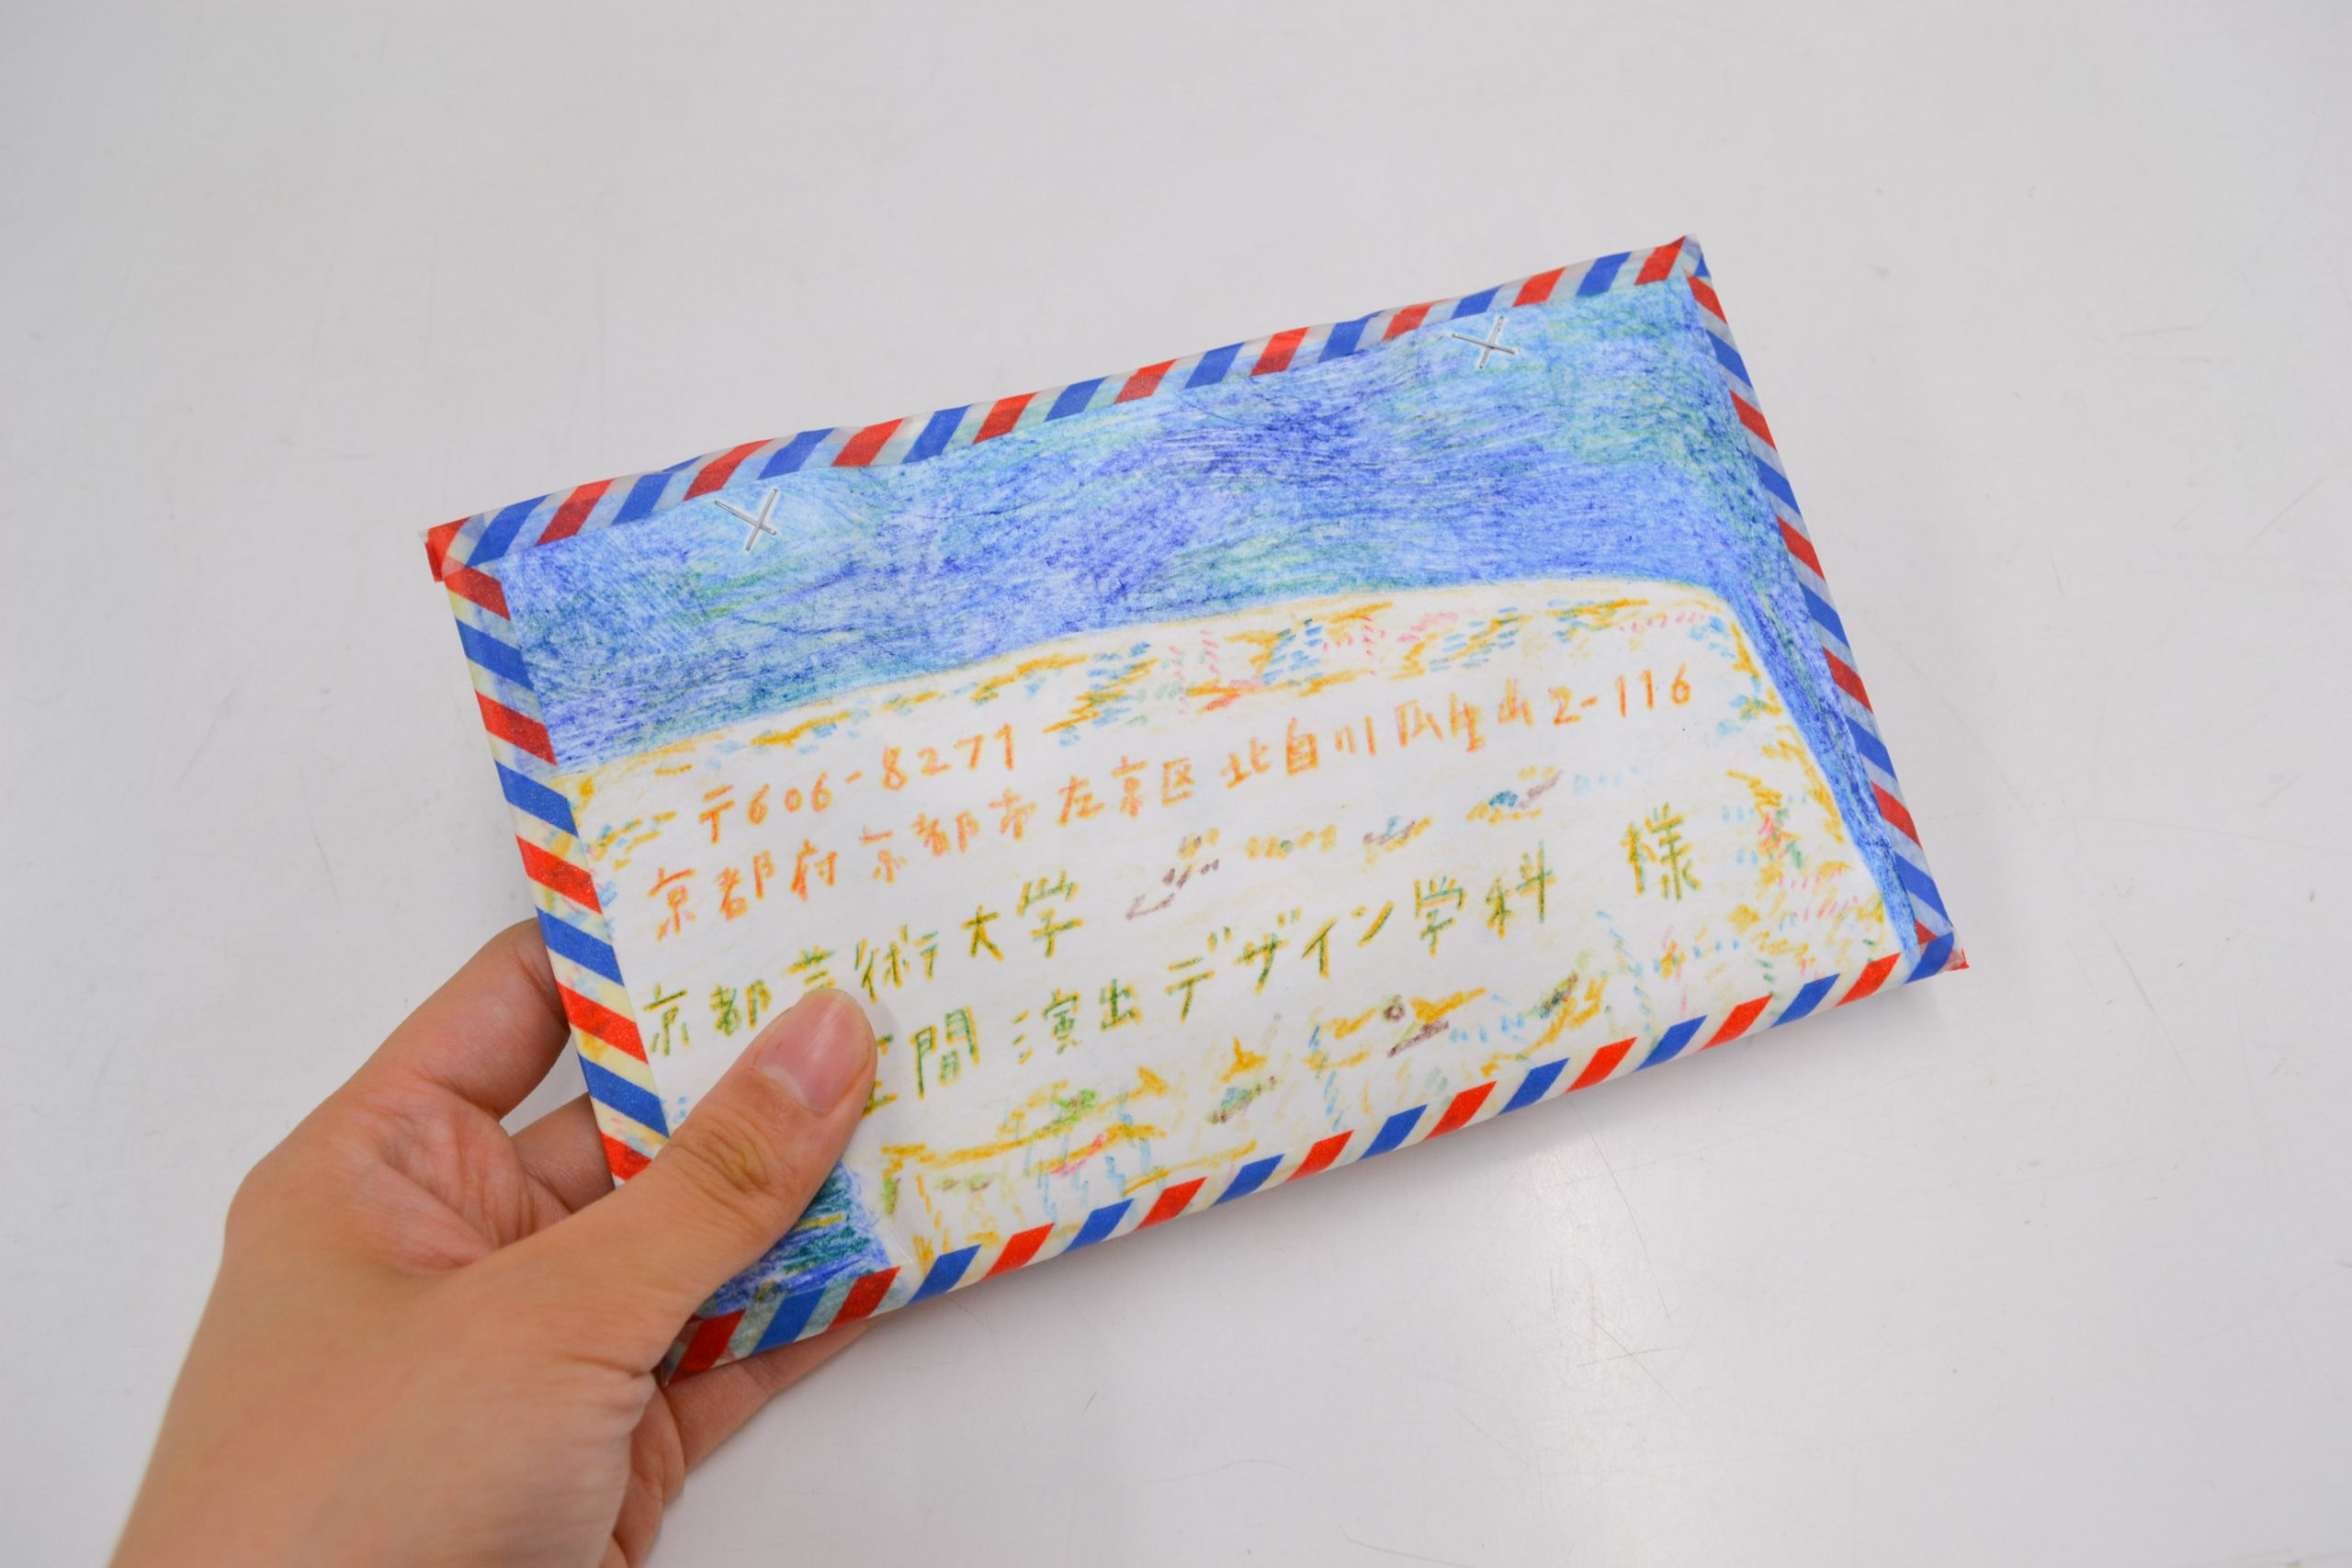 〒606-8271
京都府京都市左京区北白川瓜生山2-116
京都芸術大学
間演出デザイン学科 様